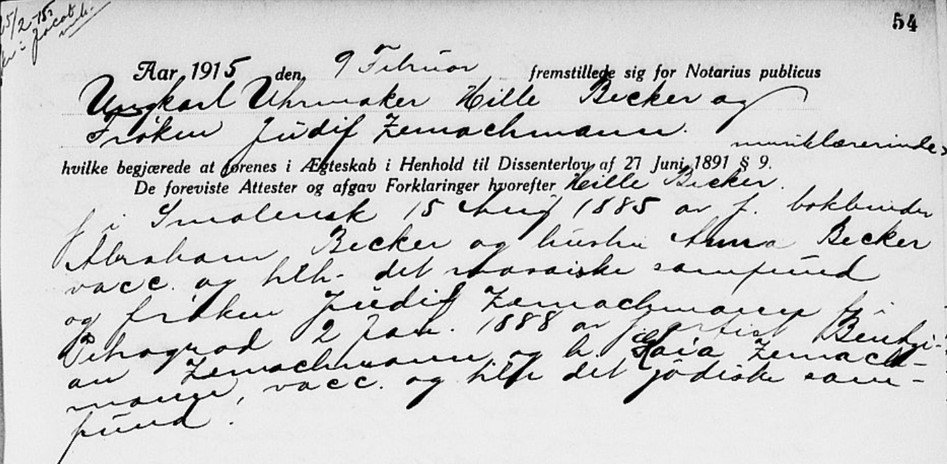 54
25/2-15
Aar 1915 den 9 Februar fremstillede sig for Notarius publicus
Ungkarl Uhrmaker Hille Becker og
Frøken Judif Zemachmann.
musiklærerinde
hvilke begjærede at førenes i Ægteskab i Henhold til Dissenterlov af 27 Juni 1891 § 9.
De foreviste Attester og afgav Forklaringer hvorefter Hille Becker.
f i Smolensk 15 Aug 1885 av f. bokbinder
Abraham Becker og hustru Anna Becker
vacc. og tilh. det mosaiske samfund
og frøken Judif Zemachmann f i
Petrograd 2 Jan. 1888 av artist Bentzi-
an Zemachmann og h. Zemach-
mann, vacc. og tilh det jødiske sam-
fund.